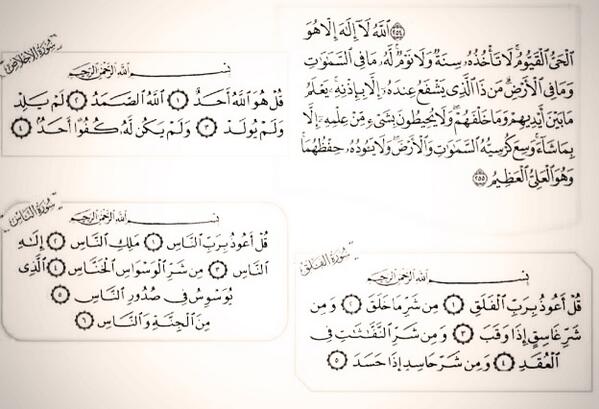 سورة الإخلاص
بِسْمِ اللَّهِ الرَّحْمَٰنِ الرَّحِيمِ
قُلْ هُوَ ٱللَّهُ أَحَدٌ ١ ٱللَّهُ ٱلصَّمَدُ ٢ لَمْ يَلِدْ
وَلَمْ يُولَدْ ٣ وَلَمْ يَكُن لَّهُۥ كُفُوًا أَحَدٌۢ ٤
٢٥٤ ٱللَّهُ لَآ إِلَٰهَ إِلَّا هُوَ
ٱلْحَىُّ ٱلْقَيُّومُ ۚ لَا تَأْخُذُهُۥ سِنَةٌ وَلَا نَوْمٌ ۚ لَّهُۥ مَا فِى ٱلسَّمَٰوَٰتِ
وَمَا فِى ٱلْأَرْضِ ۗ مَن ذَا ٱلَّذِى يَشْفَعُ عِندَهُۥٓ إِلَّا بِإِذْنِهِۦ ۚ يَعْلَمُ
مَا بَيْنَ أَيْدِيهِمْ وَمَا خَلْفَهُمْ ۖ وَلَا يُحِيطُونَ بِشَىْءٍ مِّنْ عِلْمِهِۦٓ إِلَّا
بِمَا شَآءَ ۚ وَسِعَ كُرْسِيُّهُ ٱلسَّمَٰوَٰتِ وَٱلْأَرْضَ ۖ وَلَا يَـُٔودُهُۥ حِفْظُهُمَا ۚ
وَهُوَ ٱلْعَلِىُّ ٱلْعَظِيمُ ٢٥٥
سورة الناس
بِسْمِ اللَّهِ الرَّحْمَٰنِ الرَّحِيمِ
قُلْ أَعُوذُ بِرَبِّ ٱلنَّاسِ ١ مَلِكِ ٱلنَّاسِ ٢ إِلَٰهِ
ٱلنَّاسِ ٣ مِن شَرِّ ٱلْوَسْوَاسِ ٱلْخَنَّاسِ ٤ ٱلَّذِى
يُوَسْوِسُ فِى صُدُورِ ٱلنَّاسِ ٥
مِنَ ٱلْجِنَّةِ وَٱلنَّاسِ ٦
سورة الفلق
بِسْمِ اللَّهِ الرَّحْمَٰنِ الرَّحِيمِ
قُلْ أَعُوذُ بِرَبِّ ٱلْفَلَقِ ١ مِن شَرِّ مَا خَلَقَ ٢ وَمِن
شَرِّ غَاسِقٍ إِذَا وَقَبَ ٣ وَمِن شَرِّ ٱلنَّفَّٰثَٰتِ فِى
ٱلْعُقَدِ ٤ وَمِن شَرِّ حَاسِدٍ إِذَا حَسَدَ ٥